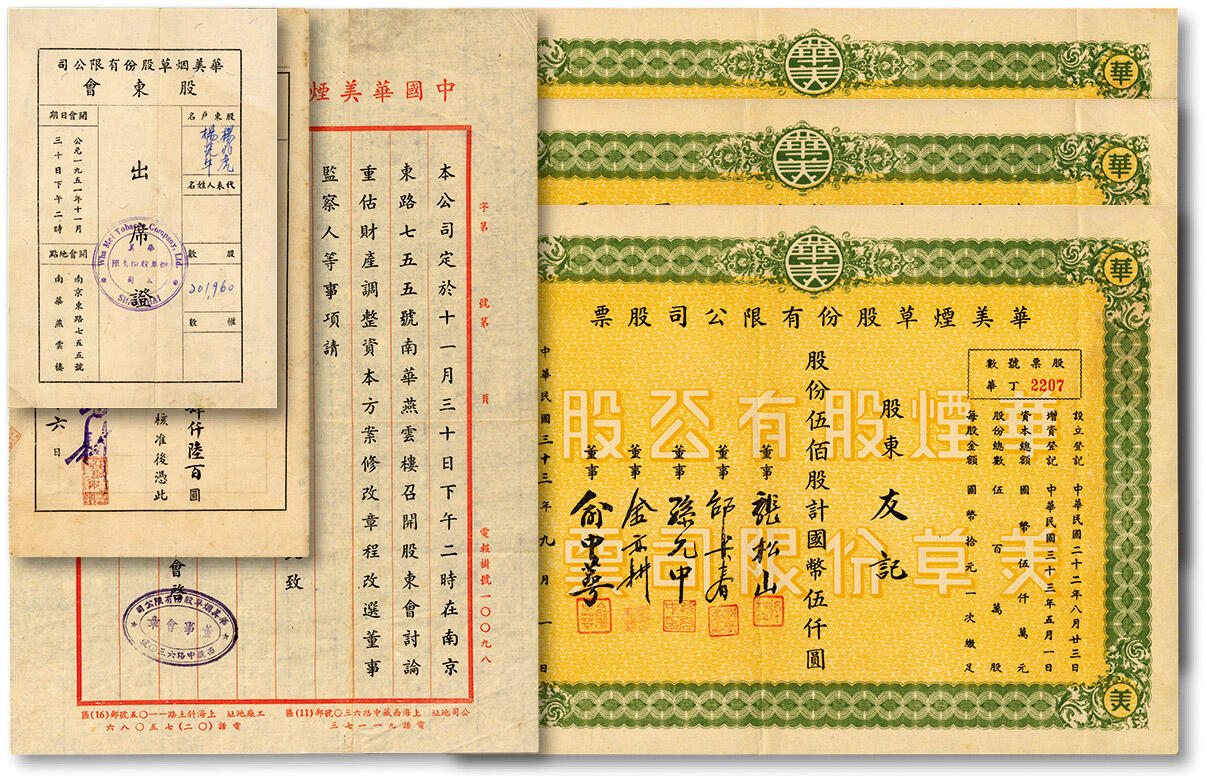 華美烟草股份有限公司
股東會
股東戶名
代表人姓名
股數
201,960
權數
出席證
開會日期
公元一九五一年十一月
三十日下午二時
開會地點
南京東路七五五號
南華燕雲樓
Wha Mei Tobacco Company, Ltd.
SHANGHAI
華美
烟草股份有限
公司
仟陸百圓
核准後憑此
六日
中國華美煙
字第 號第 頁
電報掛號一〇〇九八
本公司定於十一月三十日下午二時在南京
東路七五五號南華燕雲樓召開股東會討論
重估財產調整資本方案修改章程改選董事
監察人等事項請
致
會啓
華美烟草股份有限公司
董事會章
西藏中路六三〇號
公司地址 上海西藏中路六三〇號郵(11)區
電話九一一七三
工廠地址 上海斜土路一一〇五號郵(16)區
電話(〇二)七五〇八六
華美
華
華美
華
華美
華
華美煙草股份有限公司股票
股票號數
華丁 2207
設立登記 中華民國二十二年八月廿三日
增資登記 中華民國三十三年五月一日
資本總額 國幣伍仟萬元
股份總數 伍百萬股
每股金額 國幣拾元一次繳足
股東 友記
股份伍佰股計國幣伍仟圓
董事 張松山
董事
董事 孫元中
董事
董事 俞中華
中華民國三十三年九月一日
華煙股有公股
美草份限司票
美